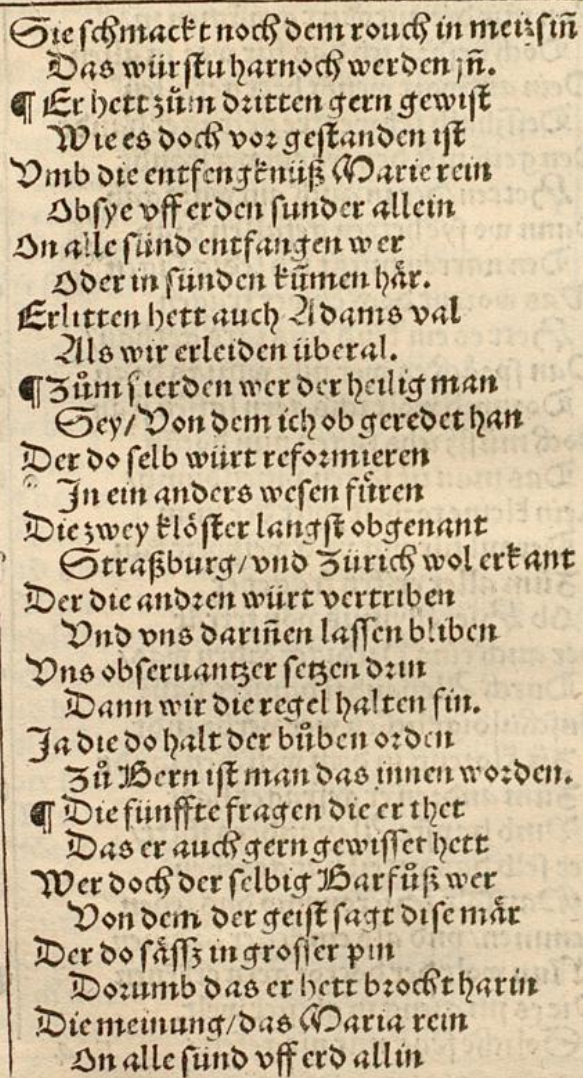 Sie schmackt noch dem rouch in meiʒ sin̄
Das würstu harnoch werden jn̄.
¶ Er hett zům dritten gern gewist
Wie es doch vor gestanden ist
Vmb die entfengknüß Marie rein
Ob sye vff erden sunder allein
On alle sünd entfangen wer
Oder in sünden kūmen här.
Erlitten hett auch Adams val
Als wir erleiden überal.
¶ Zům fierden wer der heilig man
Sey/ Von dem ich ob geredet han
Der do selb würt reformieren
In ein anders wesen füren
Die zwey klöster langst obgenant
Straßburg/ vnd Zürich wol erkant
Der die andren würt vertriben
Vnd vns darin̄en lassen bliben
Vns obseruantzer setzen drin
Dann wir die regel halten fin.
Ja die do halt der bůben orden
Zů Bern ist man das innen worden.
¶ Die fünffte fragen die er thet
Das er auch gern gewisset hett
Wer doch der selbig Barfůß wer
Von dem der geist sagt dise mär
Der do sässz in grosser pin
Dorumb das er hett brocht harin
Die meinung/ das Maria rein
On alle sünd vff erd allin